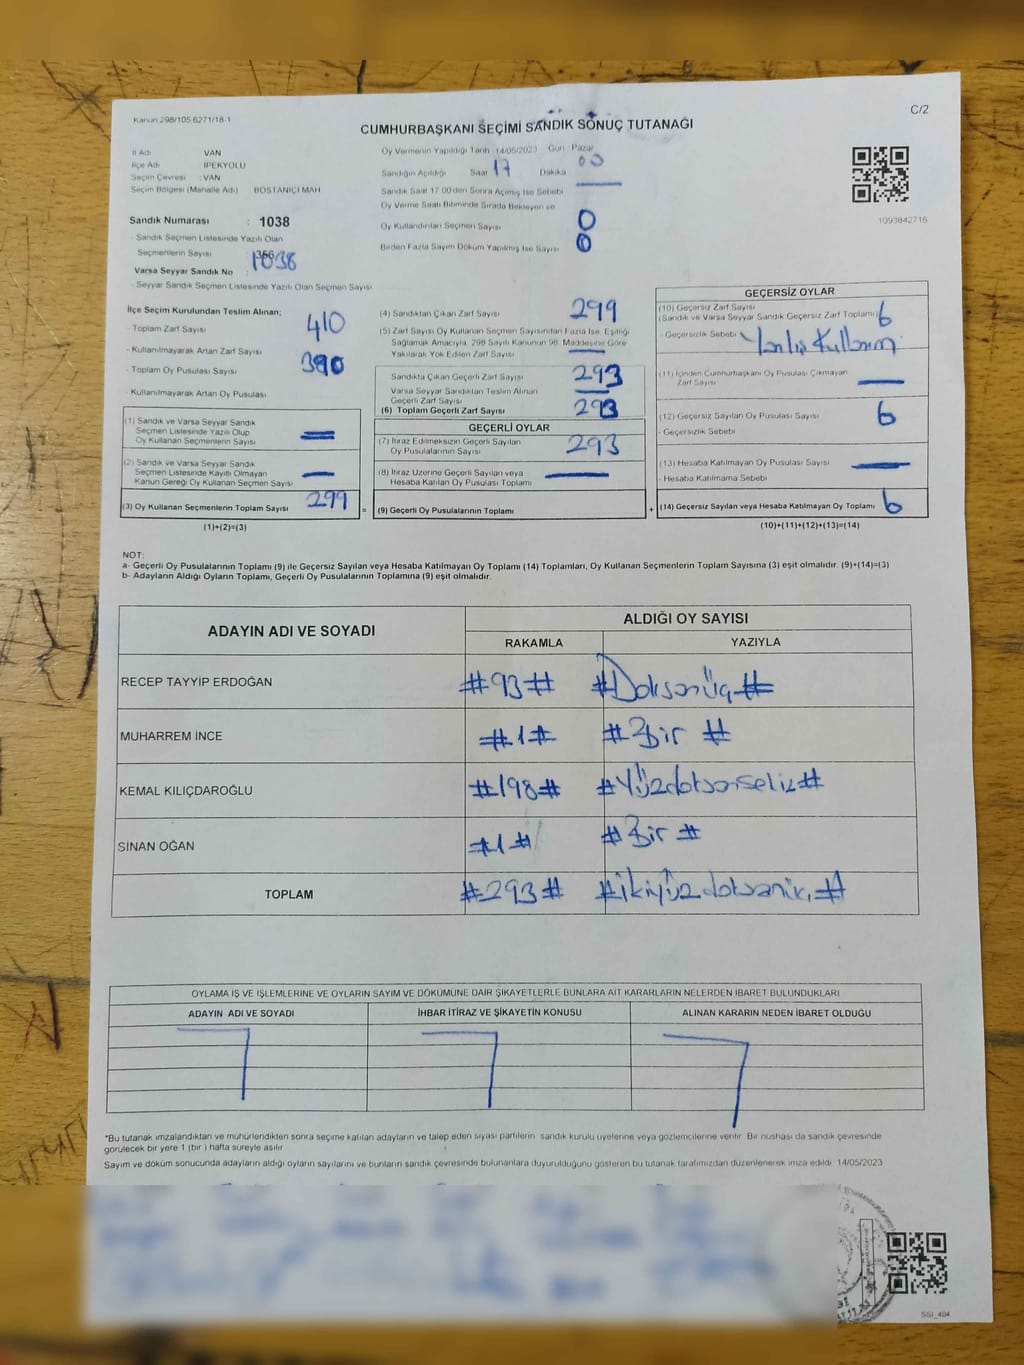 Kanun 298/105,6271/18-1
C/2
CUMHURBAŞKANI SEÇİMİ SANDIK SONUÇ TUTANAĞI
İl Adı VAN
İlçe Adı İPEKYOLU
Seçim Çevresi : VAN
Seçim Bölgesi (Mahalle Adı) BOSTANİÇİ MAH
Sandık Numarası : 1038
- Sandık Seçmen Listesinde Yazılı Olan
Seçmenlerin Sayısı 356
1038
Varsa Seyyar Sandık No
- Seyyar Sandık Seçmen Listesinde Yazılı Olan Seçmen Sayısı
Oy Vermenin Yapıldığı Tarih 14/05/2023 Gün Pazar
Sandığın Açıldığı Saat 17 Dakika 00
Sandık Saat 17 00 den Sonra Açımış İse Sebebi
Oy Verme Saati Bitiminde Sırada Bekleyen ve
Oy Kullandırılan Seçmen Sayısı 0
Birden Fazla Sayım Döküm Yapılmış İse Sayısı 0
1093842716
İlçe Seçim Kurulundan Teslim Alınan;
- Toplam Zarf Sayısı 410
- Kullanılmayarak Artan Zarf Sayısı
- Toplam Oy Pusulası Sayısı
- Kullanılmayarak Artan Oy Pusulası
(1) Sandık ve Varsa Seyyar Sandık
Seçmen Listesinde Yazılı Olup
Oy Kullanan Seçmenlerin Sayısı
(2) Sandık ve Varsa Seyyar Sandık
Seçmen Listesinde Kayıtlı Olmayan
Kanun Gereği Oy Kullanan Seçmen Sayısı
(3) Oy Kullanan Seçmenlerin Toplam Sayısı 299
(1)+(2)=(3)
(4) Sandıktan Çıkan Zarf Sayısı 299
(5) Zarf Sayısı Oy Kullanan Seçmen Sayısından Fazla İse, Eşitliği
Sağlamak Amacıyla, 298 Sayılı Kanunun 98. Maddesine Göre
Yakılarak Yok Edilen Zarf Sayısı
Sandıkta Çıkan Geçerli Zarf Sayısı 293
Varsa Seyyar Sandıktan Teslim Alınan
Geçerli Zarf Sayısı
(6) Toplam Geçerli Zarf Sayısı 293
GEÇERLİ OYLAR
(7) İtiraz Edilmeksizin Geçerli Sayılan
Oy Pusulalarının Sayısı 293
(8) İtiraz Üzerine Geçerli Sayılan veya
Hesaba Katılan Oy Pusulası Toplamı
= (9) Geçerli Oy Pusulalarının Toplamı
GEÇERSİZ OYLAR
(10) Geçersiz Zarf Sayısı
(Sandık ve Varsa Seyyar Sandık Geçersiz Zarf Toplamı) 6
- Geçersizlik Sebebi Yanlış Kullanım
(11) İçinden Cumhurbaşkanı Oy Pusulası Çıkmayan
Zarf Sayısı
(12) Geçersiz Sayılan Oy Pusulası Sayısı 6
- Geçersizlik Sebebi
(13) Hesaba Katılmayan Oy Pusulası Sayısı
- Hesaba Katılmama Sebebi
+ (14) Geçersiz Sayılan veya Hesaba Katılmayan Oy Toplamı 6
(10)+(11)+(12)+(13)=(14)
NOT:
a- Geçerli Oy Pusulalarının Toplamı (9) ile Geçersiz Sayılan veya Hesaba Katılmayan Oy Toplamı (14) Toplamları, Oy Kullanan Seçmenlerin Toplam Sayısına (3) eşit olmalıdır. (9)+(14)=(3)
b- Adayların Aldığı Oyların Toplamı, Geçerli Oy Pusulalarının Toplamına (9) eşit olmalıdır.
ADAYIN ADI VE SOYADI
ALDIĞI OY SAYISI
RAKAMLA YAZIYLA
RECEP TAYYİP ERDOĞAN #93# #Doksanüç#
MUHARREM İNCE #1# #Bir#
KEMAL KILIÇDAROĞLU #198# #Yüzdoksansekiz#
SİNAN OĞAN #1# #Bir#
TOPLAM #293#
OYLAMA İŞ VE İŞLEMLERİNE VE OYLARIN SAYIM VE DÖKÜMÜNE DAİR ŞİKAYETLERLE BUNLARA AİT KARARLARIN NELERDEN İBARET BULUNDUKLARI
ADAYIN ADI VE SOYADI İHBAR İTİRAZ VE ŞİKAYETİN KONUSU ALINAN KARARIN NEDEN İBARET OLDUĞU
*Bu tutanak imzalandıktan ve mühürlendikten sonra seçime katılan adayların ve talep eden siyasi partilerin sandık kurulu üyelerine veya gözlemcilerine verilir. Bir nüshası da sandık çevresinde
görülecek bir yere 1 (bir ) hafta süreyle asılır
Sayım ve döküm sonucunda adayların aldığı oyların sayılarını ve bunların sandık çevresinde bulunanlara duyurulduğunu gösteren bu tutanak tarafımızdan düzenlenerek imza edildi 14/05/2023
SSİ_404